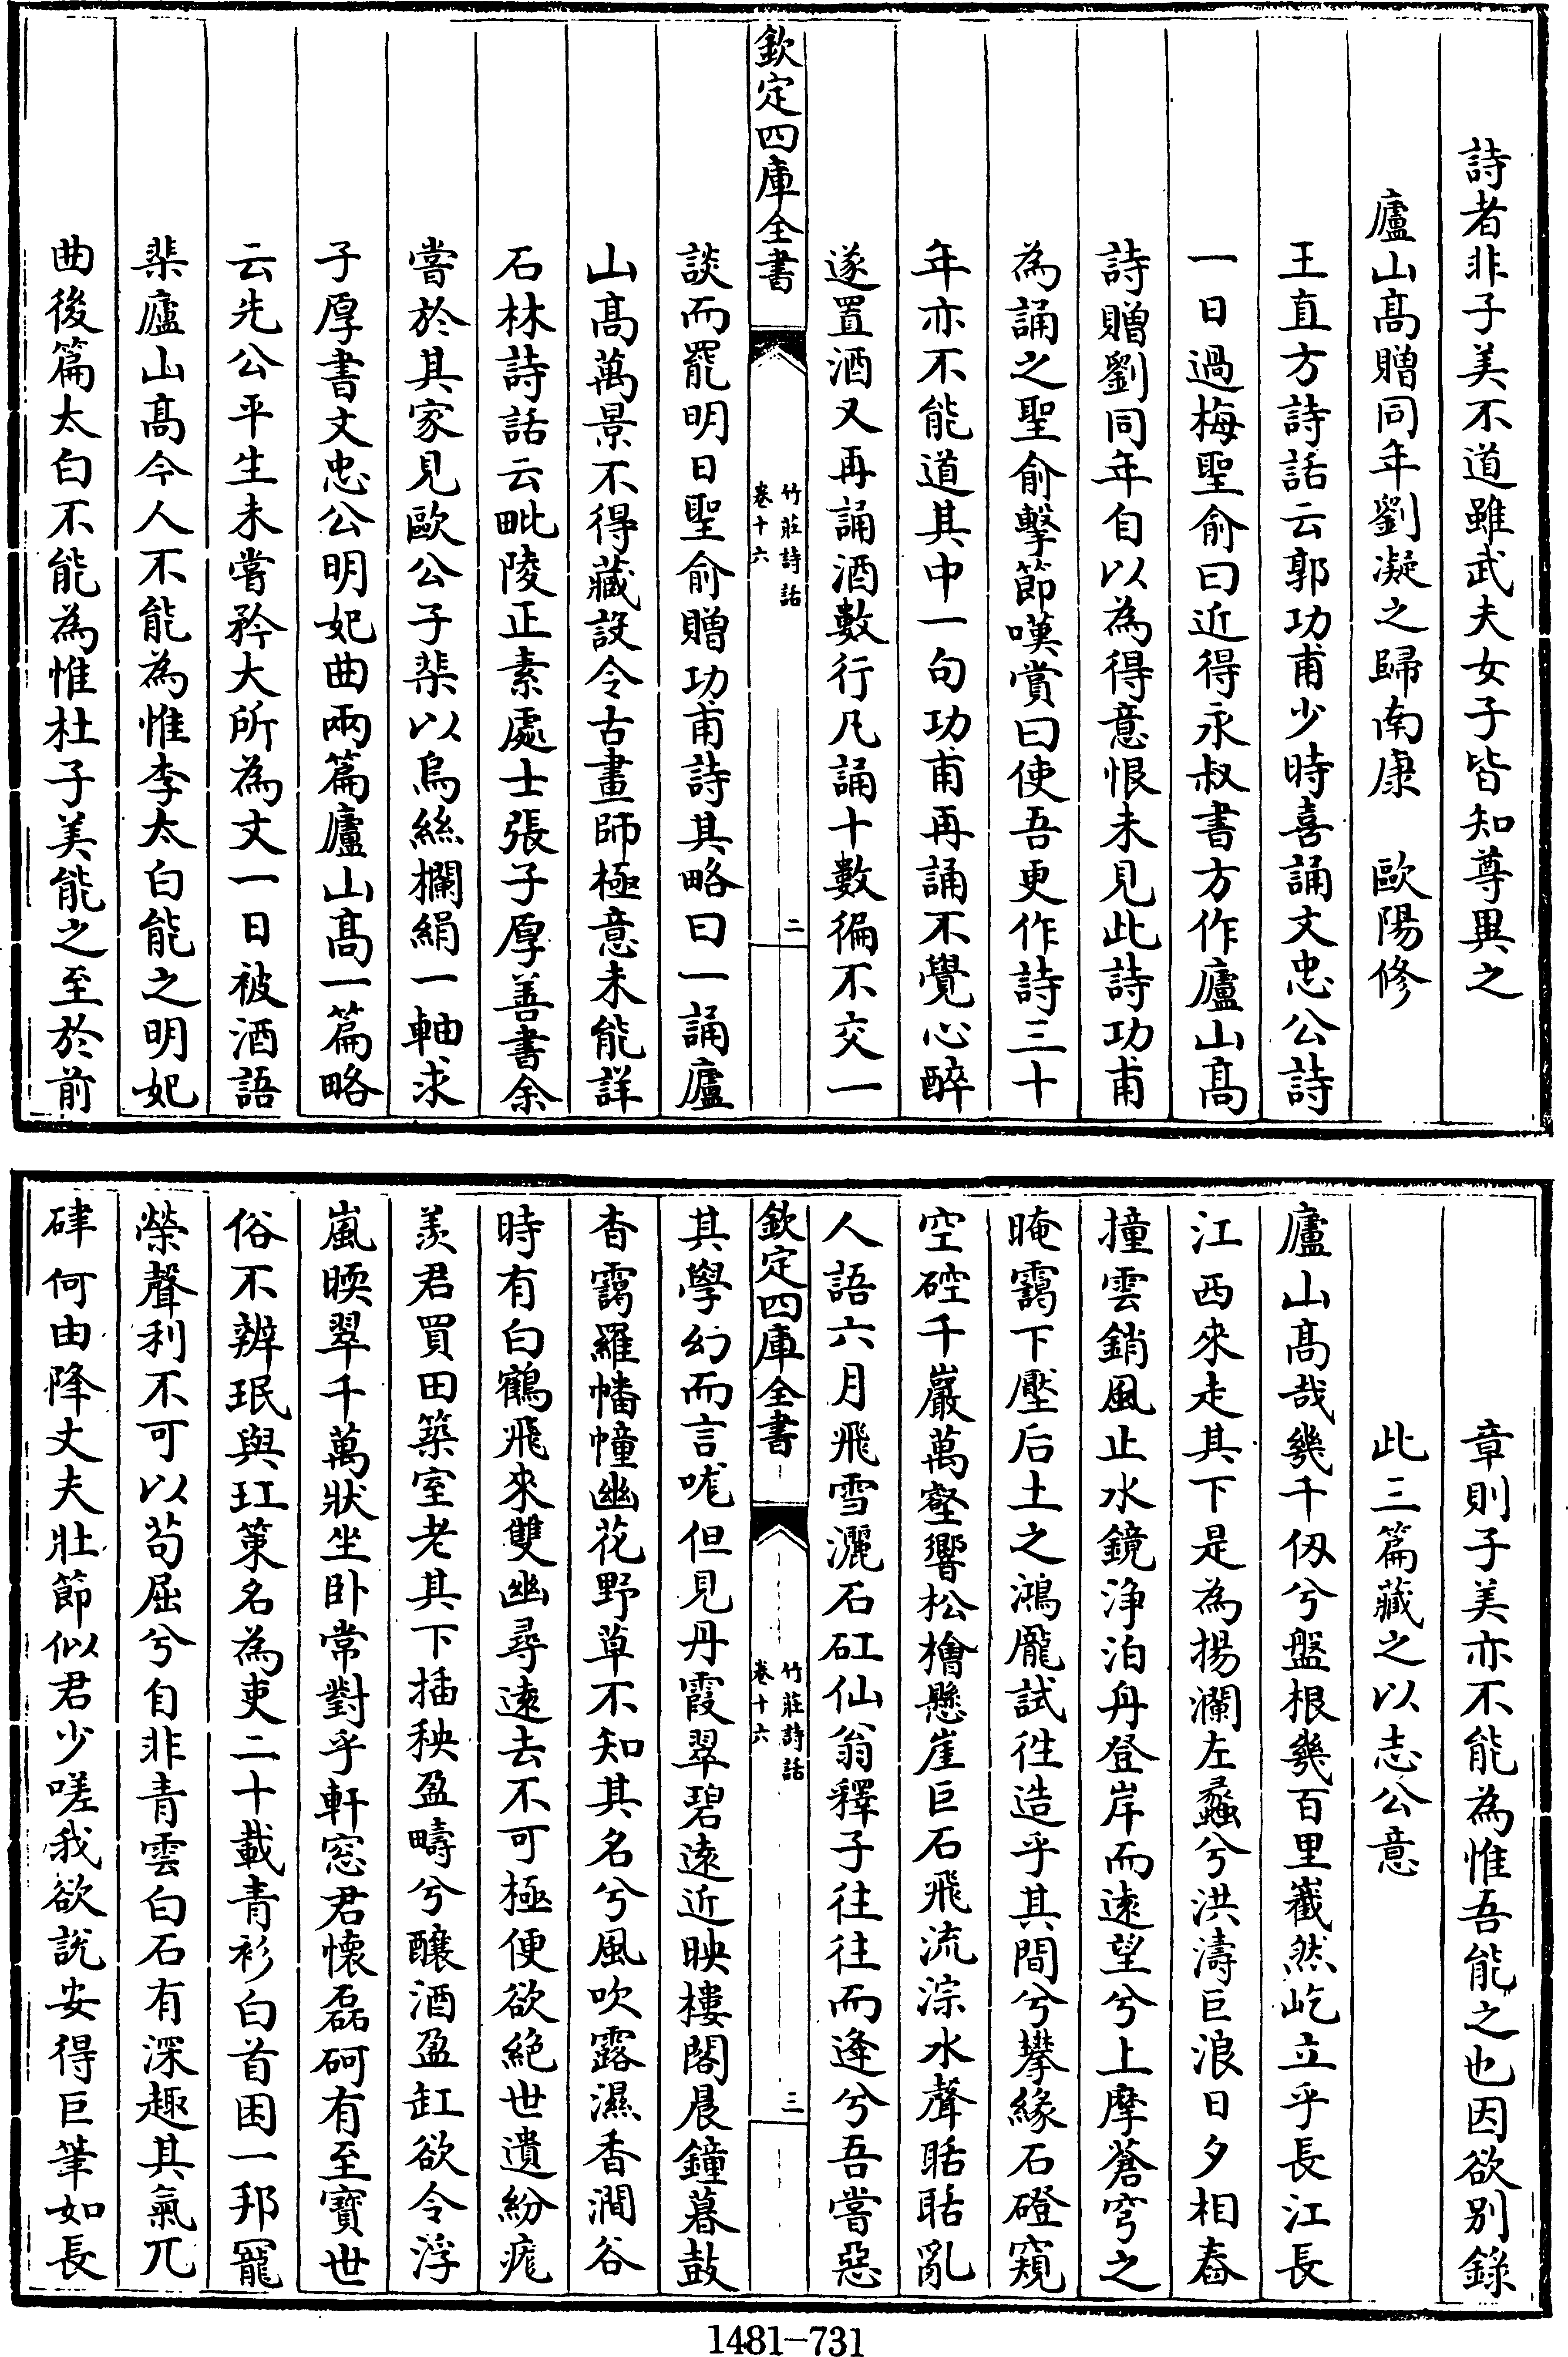 詩者非子美不道雖武夫女子皆知尊異之
廬山髙贈同年劉凝之歸南康　歐陽修
王直方詩話云郭功甫少時喜誦文忠公詩
一日過梅聖俞曰近得永叔書方作廬山髙
詩贈劉同年自以為得意恨未見此詩功甫
為誦之聖俞擊節嘆賞曰使吾更作詩三十
年亦不能道其中一句功甫再誦不覺心醉
遂置酒又再誦酒數行凡誦十數徧不交一
欽定四庫全書
竹莊詩話
卷十六
二
談而罷明日聖俞贈功甫詩其略曰一誦廬
山髙萬景不得藏設令古畫師極意未能詳
石林詩話云毗陵正素處士張子厚善書余
嘗於其家見歐公子棐以烏絲欄絹一軸求
子厚書文忠公明妃曲兩篇廬山髙一篇略
云先公平生未嘗矜大所為文一日被酒語
棐廬山髙今人不能為惟李太白能之明妃
曲後篇太白不能為惟杜子美能之至於前
章則子美亦不能為惟吾能之也因欲别錄
此三篇藏之以志公意
廬山髙哉幾千仭兮盤根幾百里巀然屹立乎長江長
江西來走其下是為揚瀾左蠡兮洪濤巨浪日夕相舂
撞雲銷風止水鏡浄泊舟登岸而逺望兮上摩蒼穹之
晻靄下壓后土之鴻厖試徃造乎其間兮攀緣石磴窺
空硿千巖萬壑響松檜懸崖巨石飛流淙水聲聒聒亂
人語六月飛雪灑石矼仙翁釋子往往而逢兮吾嘗惡
欽定四庫全書
竹莊詩話
卷十六
三
其學幻而言哤但見丹霞翠碧逺近映樓閣晨鐘暮鼓
杳靄羅幡幢幽花野草不知其名兮風吹露濕香澗谷
時有白鶴飛來雙幽尋逺去不可極便欲絶世遺紛痝
羨君買田築室老其下插秧盈疇兮釀酒盈缸欲令浮
嵐暖翠千萬狀坐卧常對乎軒窓君懷磊砢有至寶世
俗不辨珉與玒䇿名為吏二十載青衫白首困一邦寵
榮聲利不可以茍屈兮自非青雲白石有深趣其氣兀
硉何由降丈夫壯節似君少嗟我欲説安得巨筆如長
1481-731